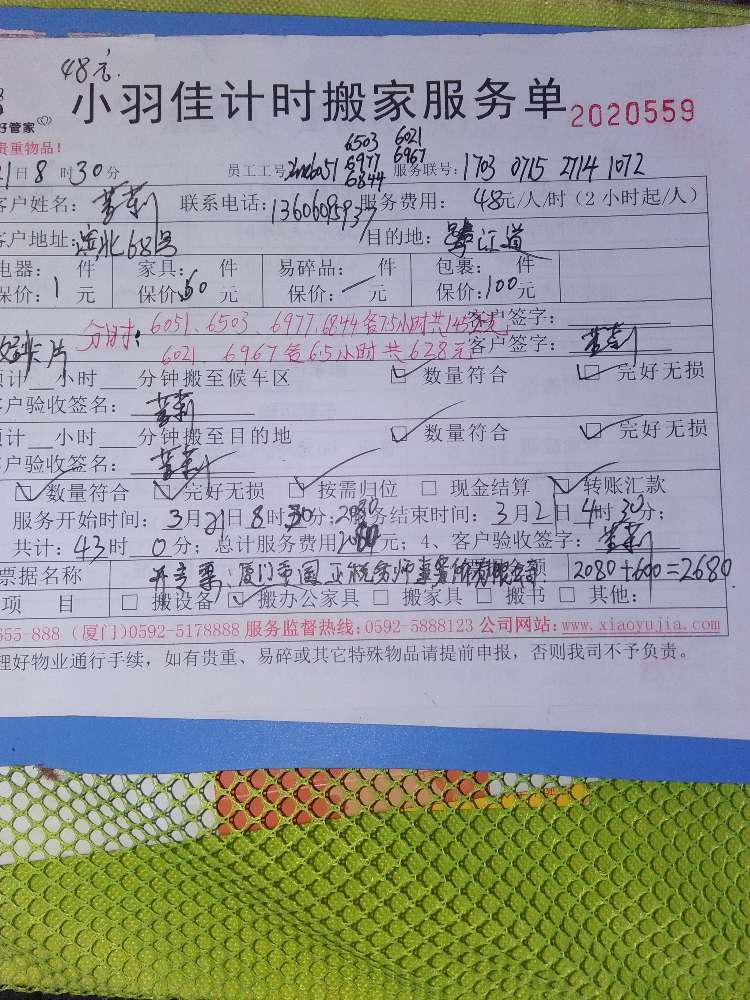 48元.
小羽佳计时搬家服务单 2020559
好管家
贵重物品！
6503 6021
6977 6967
6844
21日8时30分 员工工号 6051 服务联号：1703 0715 2714 1072
客户姓名： 联系电话：13606095937 服务费用： 48元/人/时（2小时起/人）
客户地址： 北68号 目的地： 江道
电器： 件 家具： 件 易碎品： 件 包裹： 件
保价：1元 保价：50元 保价：/元 保价：100元
分时：6051、6503、6977、6844各7.5小时共1452元 客户签字：
6021、6967各6.5小时共628元 客户签字：
好卡片
预计__小时___分钟搬至候车区 ☑数量符合 ☑完好无损
客户验收签名：
预计__小时___分钟搬至目的地 ☑数量符合 ☑完好无损
客户验收签名：
☑数量符合 ☑完好无损 ☑按需归位 □现金结算 ☑转账汇款
服务开始时间：3月21日8时30分；2080服务结束时间：3月21日4时30分；
共计：43时0分；总计服务费用2080元；4、客户验收签字：
票据名称 开专票：厦门 税务师事务所有限公司 额 2080+600=2680
项 目 □搬设备 ☑搬办公家具 □搬家具 □搬书 □其他：
555-888 (厦门)0592-5178888 服务监督热线:0592-5888123 公司网站:www.xiaoyujia.com
理好物业通行手续，如有贵重、易碎或其它特殊物品请提前申报，否则我司不予负责。